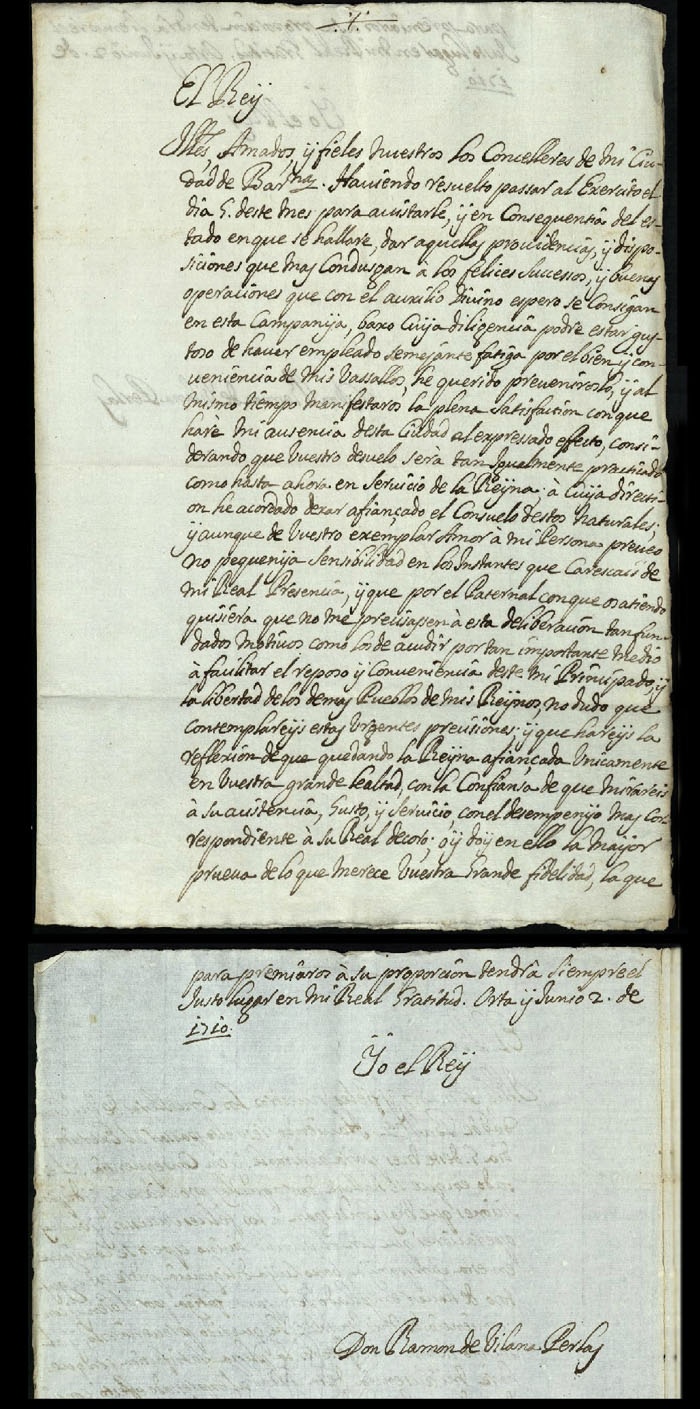 El Reÿ
Illes, Amados, ÿ fieles nuestros los Concelleres de mi Ciu-
dad de Barna. Haviendo resuelto passar al Exercito el
dia 5. deste mes para avistarle, ÿ en Consequentia del es-
tado en que se hallare, dar aquellas providencias, ÿ dispo-
siciones que mas Condusgan a los felices Sucessos, ÿ buenas
operaciones que con el auxilio Divino espero se Consigan
en esta Campanija, baxo Cuÿa diligencia podrè estar gus-
toso de haver empleado semejante fatiga por el bien ÿ con-
veniencia de mis Vassallos, he querido preveniroslo, ÿ al
mismo tiempo manifestaros la plena satisfaction con que
hare mi ausencia desta Ciudad al expressado effecto, consi-
derando que Vuestro desvelo serà tan Igualmente practicado
como hasta ahora en Servicio de la Reÿna; à Cuÿa directi-
on he acordado dexar afiançado el Consuelo destos Naturales;
ÿ aunque de Vuestro exemplar Amor à mi Persona preveo
no pequenija Sensibilidad en los Instantes que Carescais de
mi Real Presencia, ÿ que por el Paternal con que os atiendo
quisiera que no me precissassen à esta deliberaciòn tan fun-
dados motivos como los de acudir por tan importante medio
à facilitar el reposo ÿ Conveniencia deste mi Principado, ÿ
la libertad de los demas Pueblos de mis Reÿnos, no dudo que
contemplareÿs estas Urgentes precisiones; ÿ que hareÿs la
reflexiòn de que quedando la Reÿna afiançada Unicamente
en Vuestra grande lealtad, con la Confiansa de que mirareis
à su asistencia, Gusto, ÿ Servicio, con el desempenijo mas Cor-
respondiente à su Real decoro; os doÿ en ello la maÿor
prueva de lo que merece Vuestra Grande fidelidad, la que
para premiaros à su proporciòn tendrà Siempre el
Justo lugar en mi Real Gratitud. Orta ÿ Junio 2. de
1710.
Yo el Reÿ
Don Ramon de Vilana Perlas